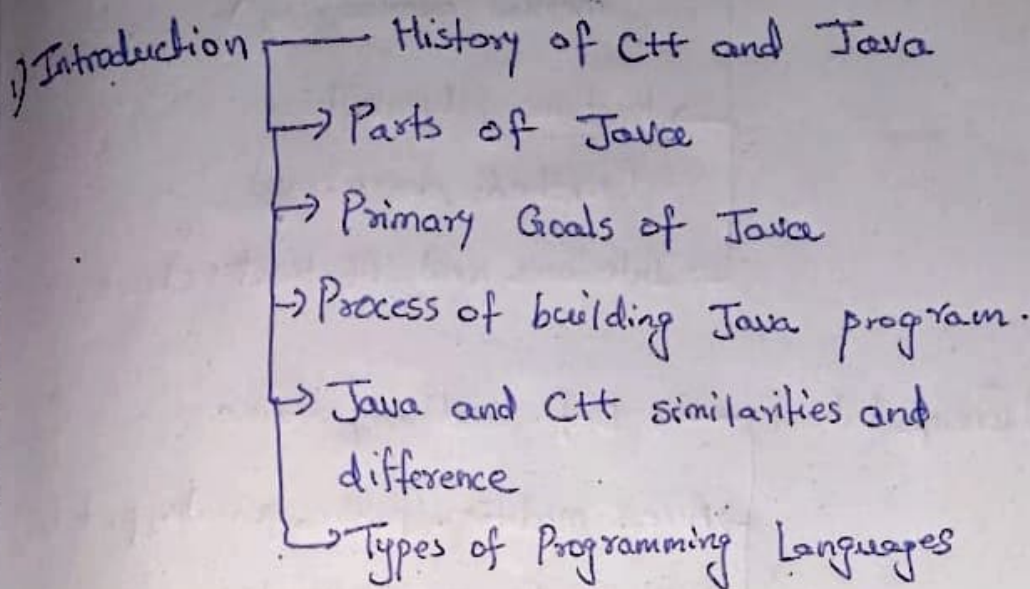 1) Introduction — History of C++ and Java
→ Parts of Java
→ Primary Goals of Java
→ Process of building Java program.
→ Java and C++ similarities and
difference
→ Types of Programming Languages